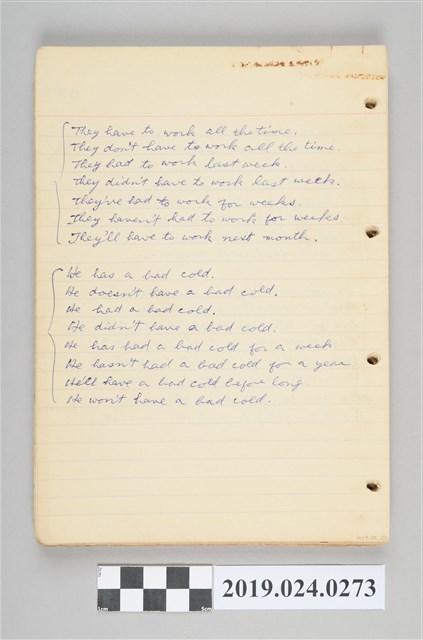 They have to work all the time.
They don't have to work all the time.
They had to work last week.
They didn't have to work last week.
They've had to work for weeks.
They haven't had to work for weeks.
They'll have to work next month.
He has a bad cold.
He doesn't have a bad cold.
He had a bad cold.
He didn't have a bad cold.
He has had a bad cold for a week.
He hasn't had a bad cold for a year
He'll have a bad cold before long.
He won't have a bad cold.
1cm
5cm
2019.024.0273